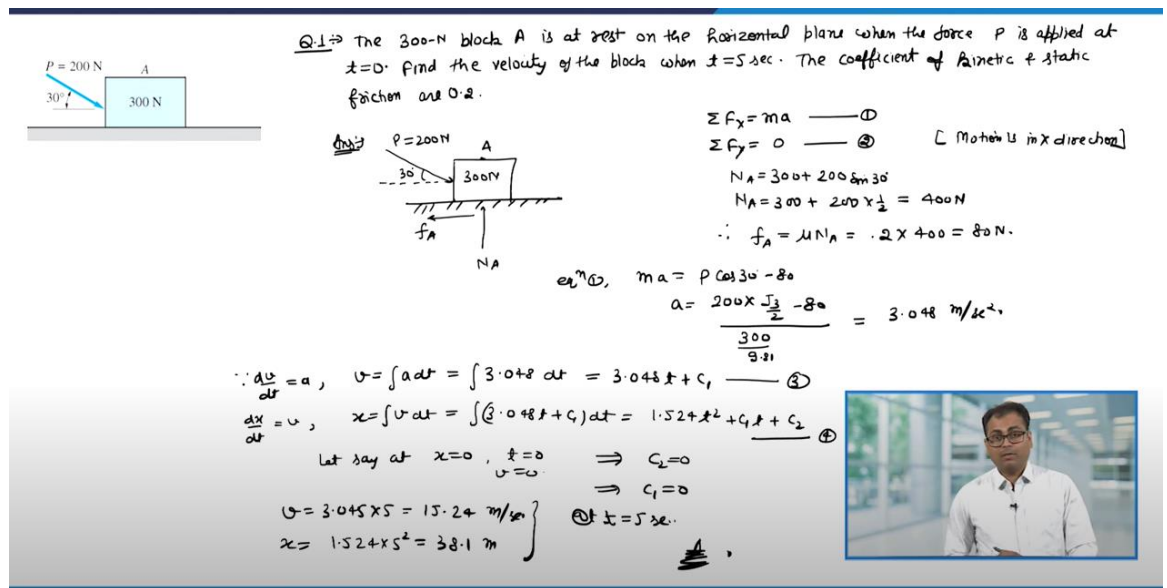 Q.1⇒ The 300-N block A is at rest on the horizontal plane when the force P is applied at
t=0. Find the velocity of the block when t=5 sec. The coefficient of kinetic & static
friction are 0.2.
P = 200 N
A
30°
300 N
Ans:⇒
P=200N
A
30°
300N
fA
NA
ΣFx = ma ——— ①
ΣFy = 0 ——— ② [Motion is in x direction]
NA = 300 + 200 sin 30
NA = 300 + 200 × 1/2 = 400N
∴ fA = μNA = .2 × 400 = 80N.
eqⁿ ①, ma = P cos 30 - 80
a = (200 × √3/2 - 80) / (300/9.81) = 3.048 m/sec².
∵ dv/dt = a, v = ∫a dt = ∫3.048 dt = 3.048t + C₁ ——— ③
dx/dt = v, x = ∫v dt = ∫(3.048t + C₁)dt = 1.524t² + C₁t + C₂ ——— ④
Let say at x=0, t=0 ⇒ C₂=0
v=0. ⇒ C₁=0
v = 3.045×5 = 15.24 m/sec } At t=5 sec.
x = 1.524×5² = 38.1 m